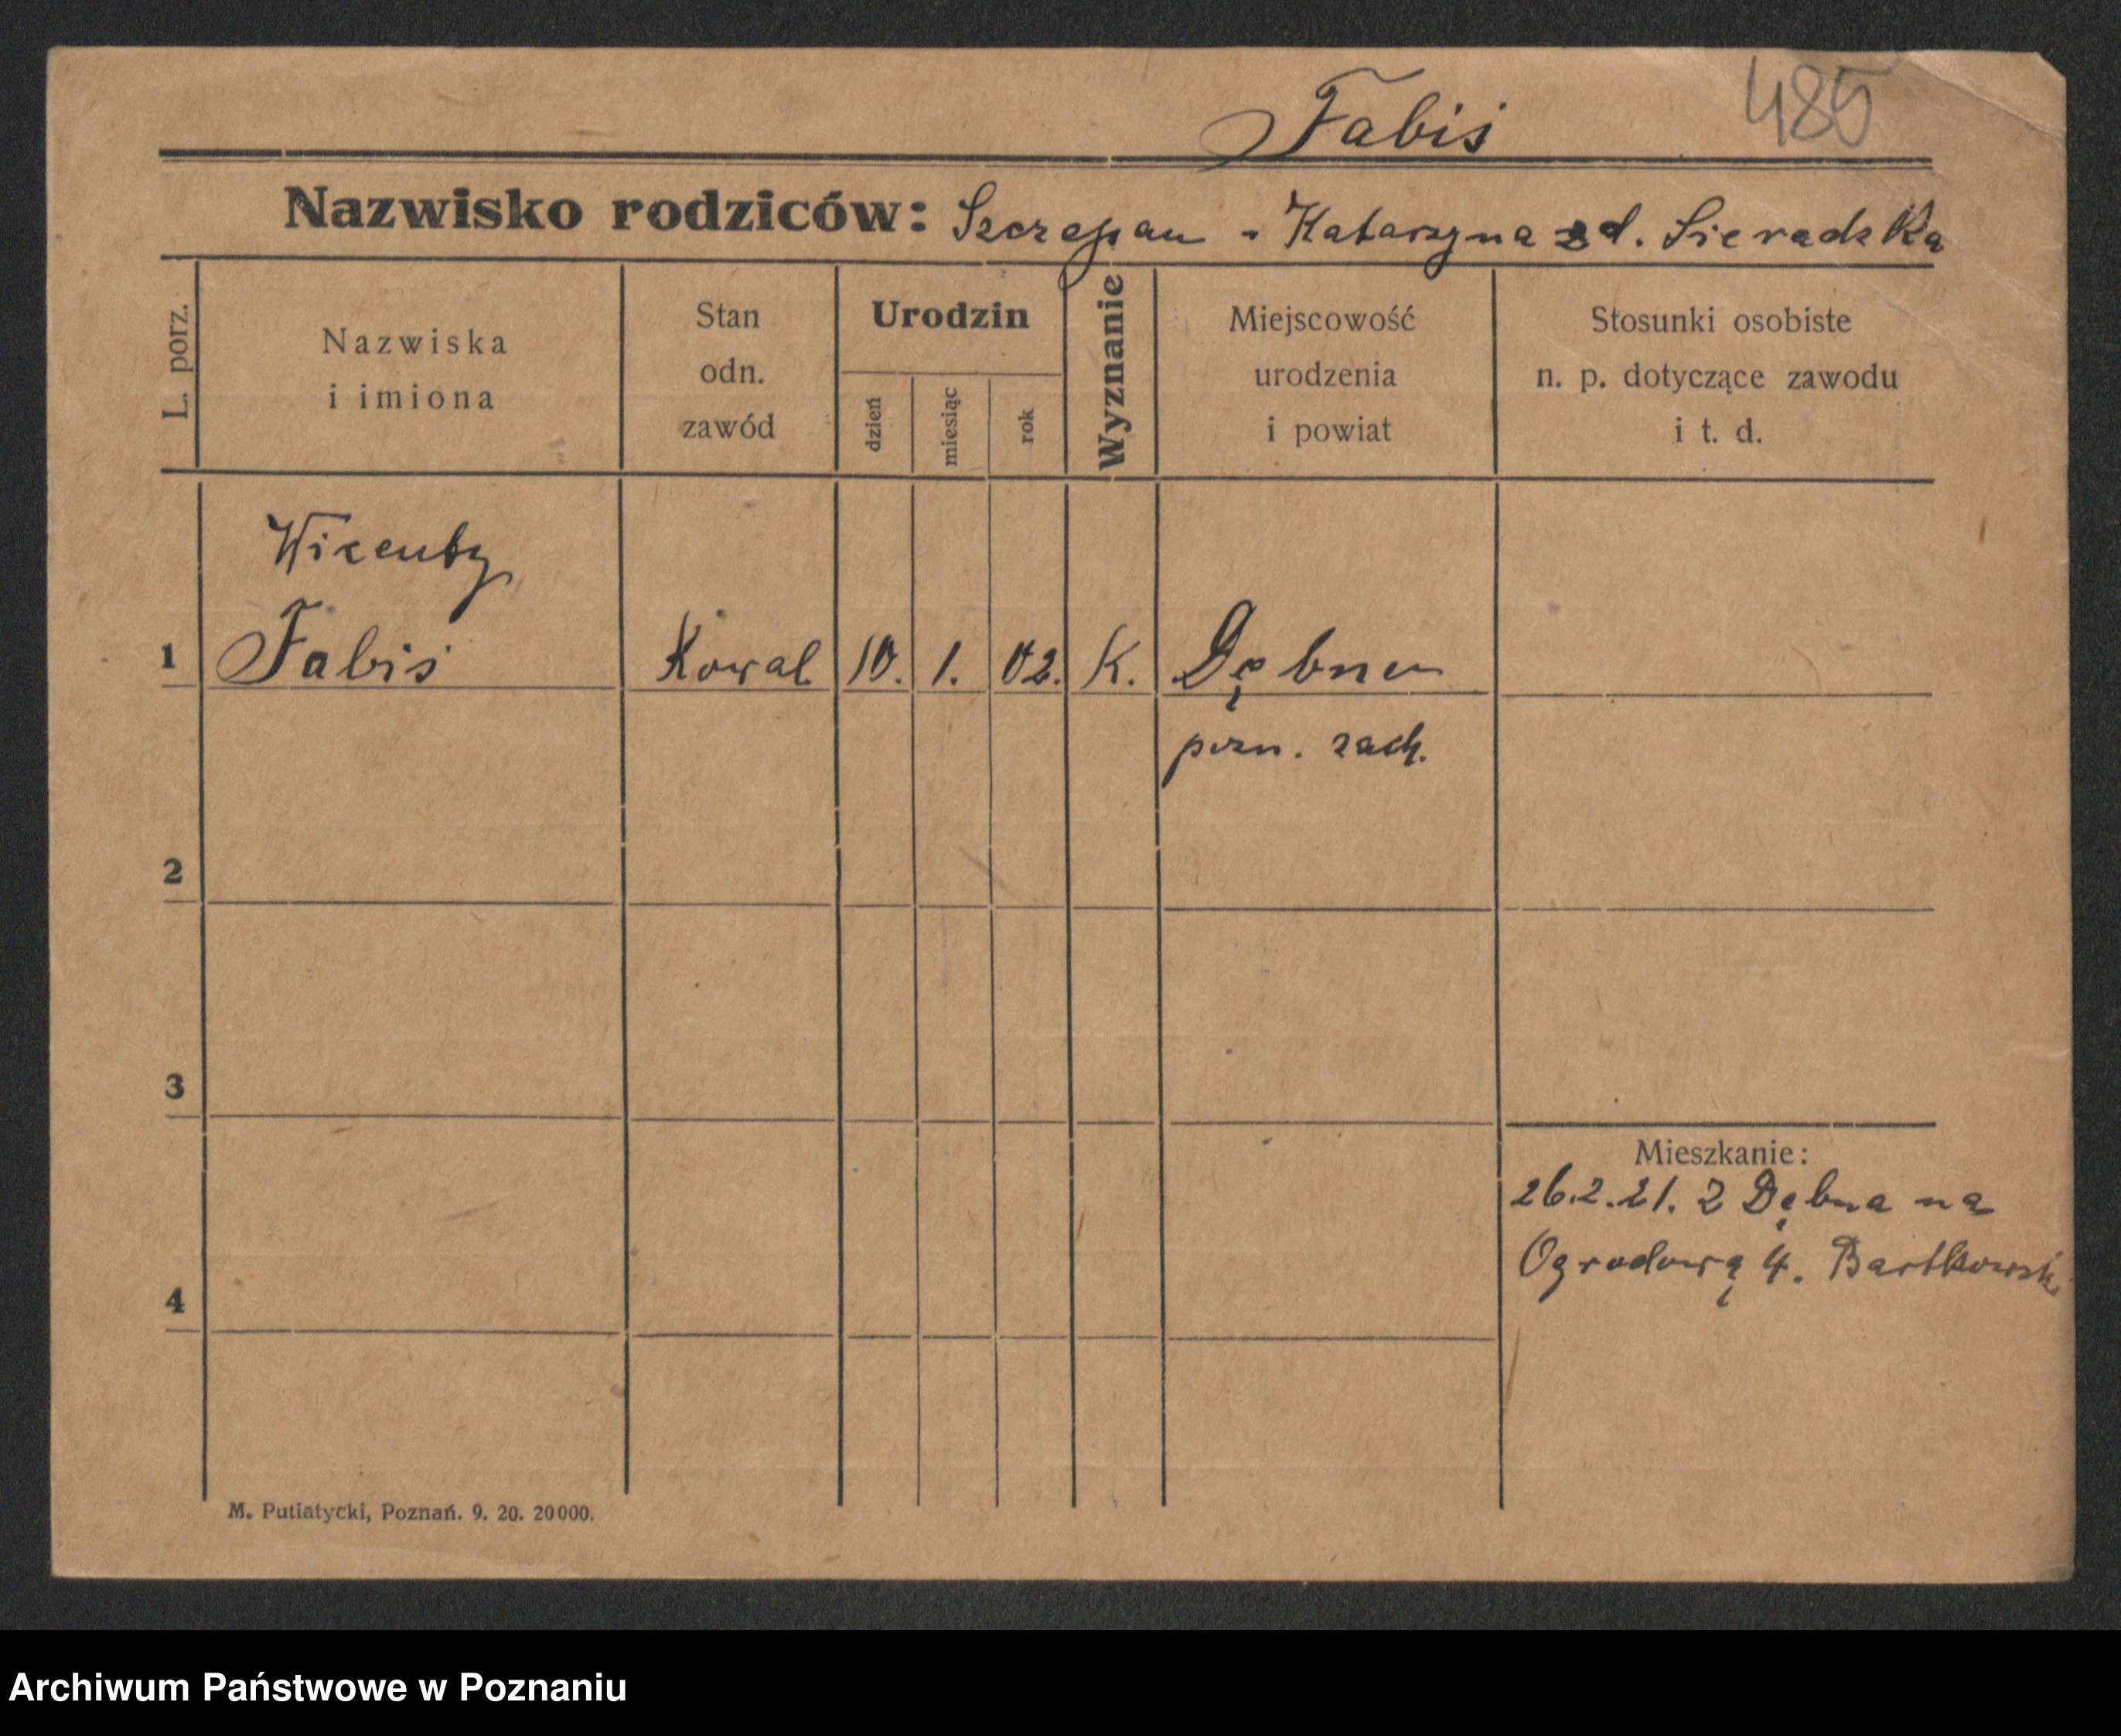 Fabiś
485
Nazwisko rodziców: Szczepan - Katarzyna zd. Sieradzka
L. porz.
Nazwiska
i imiona
Stan
odn.
zawód
Urodzin
dzień
miesiąc
rok
Wyznanie
Miejscowość
urodzenia
i powiat
Stosunki osobiste
n. p. dotyczące zawodu
i t. d.
Wicenty
1 Fabiś Kowal 10. 1. 02. K. Dębno
pozn. zach.
2
3
Mieszkanie:
26.2.21. Z Dębna na
Ogrodową 4. Bartkowski
4
M. Putiatycki, Poznań. 9. 20. 20000.
Archiwum Państwowe w Poznaniu